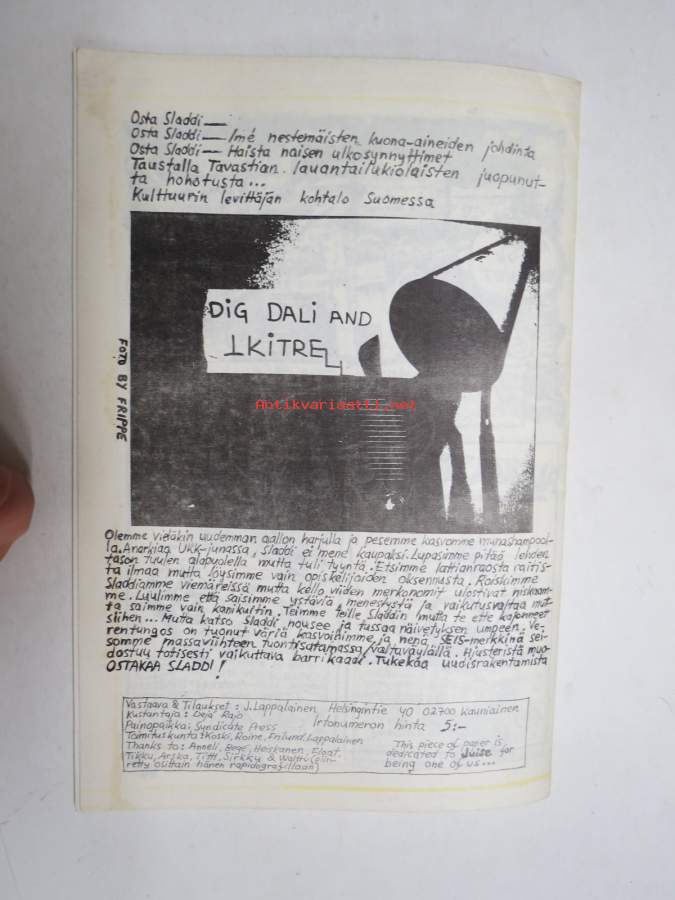 Osta Sladdi —
Osta Sladdi — Ime nestemäisten kuona-aineiden johdinta
Osta Sladdi — Haista naisen ulkosynnyttimet
Taustalla Tavastian lauantailukiolaisten juopunut-
ta hohotusta...
Kulttuurin levittäjän kohtalo Suomessa
DiG DALi AND
FOTO BY FRIPPE
Antikvariaatti.net
Olemme vieläkin uudemman aallon harjalla ja pesemme kasvomme munashampool-
la. Anarkiaa UKK-junassa, Sladdi ei mene kaupaksi. Lupasimme pitää lehden
tason tuulen alapuolella mutta tuli tyyntä. Etsimme latrianraosta raitis-
ta ilmaa mutta löysimme vain opiskelijoiden oksennusta. Roiskimme
Sladdiamme viemäreissä mutta kello viiden merkonomit ulostivat niskaam-
me. Luulimme että saisimme ystäviä, menestystä ja vaikutusvaltaa mut-
ta saimme vain kanikultin. Teimme teille Sladdin mutta te ette kajonneet
siihen... Mutta katso Sladdi nousee ja tussaa näivetyksen umpeen. Ve-
rentungos on tuonut väriä kasvoihimme ja nenä SEIS-merkkinä sei-
somme massaviihteen tuontisatamassa/valtaväylällä. Hiusteristä muo-
dostuu totisesti vaikuttava barrikaadi. Tukekaa uudisrakentamista
OSTAKAA SLADDI!
Vastaava & Tilaukset: J. Lappalainen, Helsingintie 40 02700 Kauniainen
Kustantaja: Deja Rajo
Painopaikka: Syndicate Press Irtonumeron hinta 5:-
Toimituskunta: Koski, Roine, Enlund, Lappalainen
Thanks to: Anneli, Bege, Heiskanen, Float,
Tikku, Arska, Titti, Sirkky & Walttu (elin-
retty osittain hänen rapidografillaan)
This piece of paper is
dedicated to Juise for
being one of us...